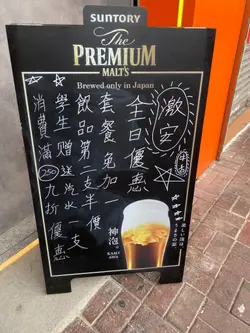 SUNTORY
The
PREMIUM
MALT'S
Brewed only in Japan
激安
全日優惠
套餐免加一
飲品第二支半價
學生贈送汽水支
消費滿250九折優惠
神泡。
KAMI
AWA